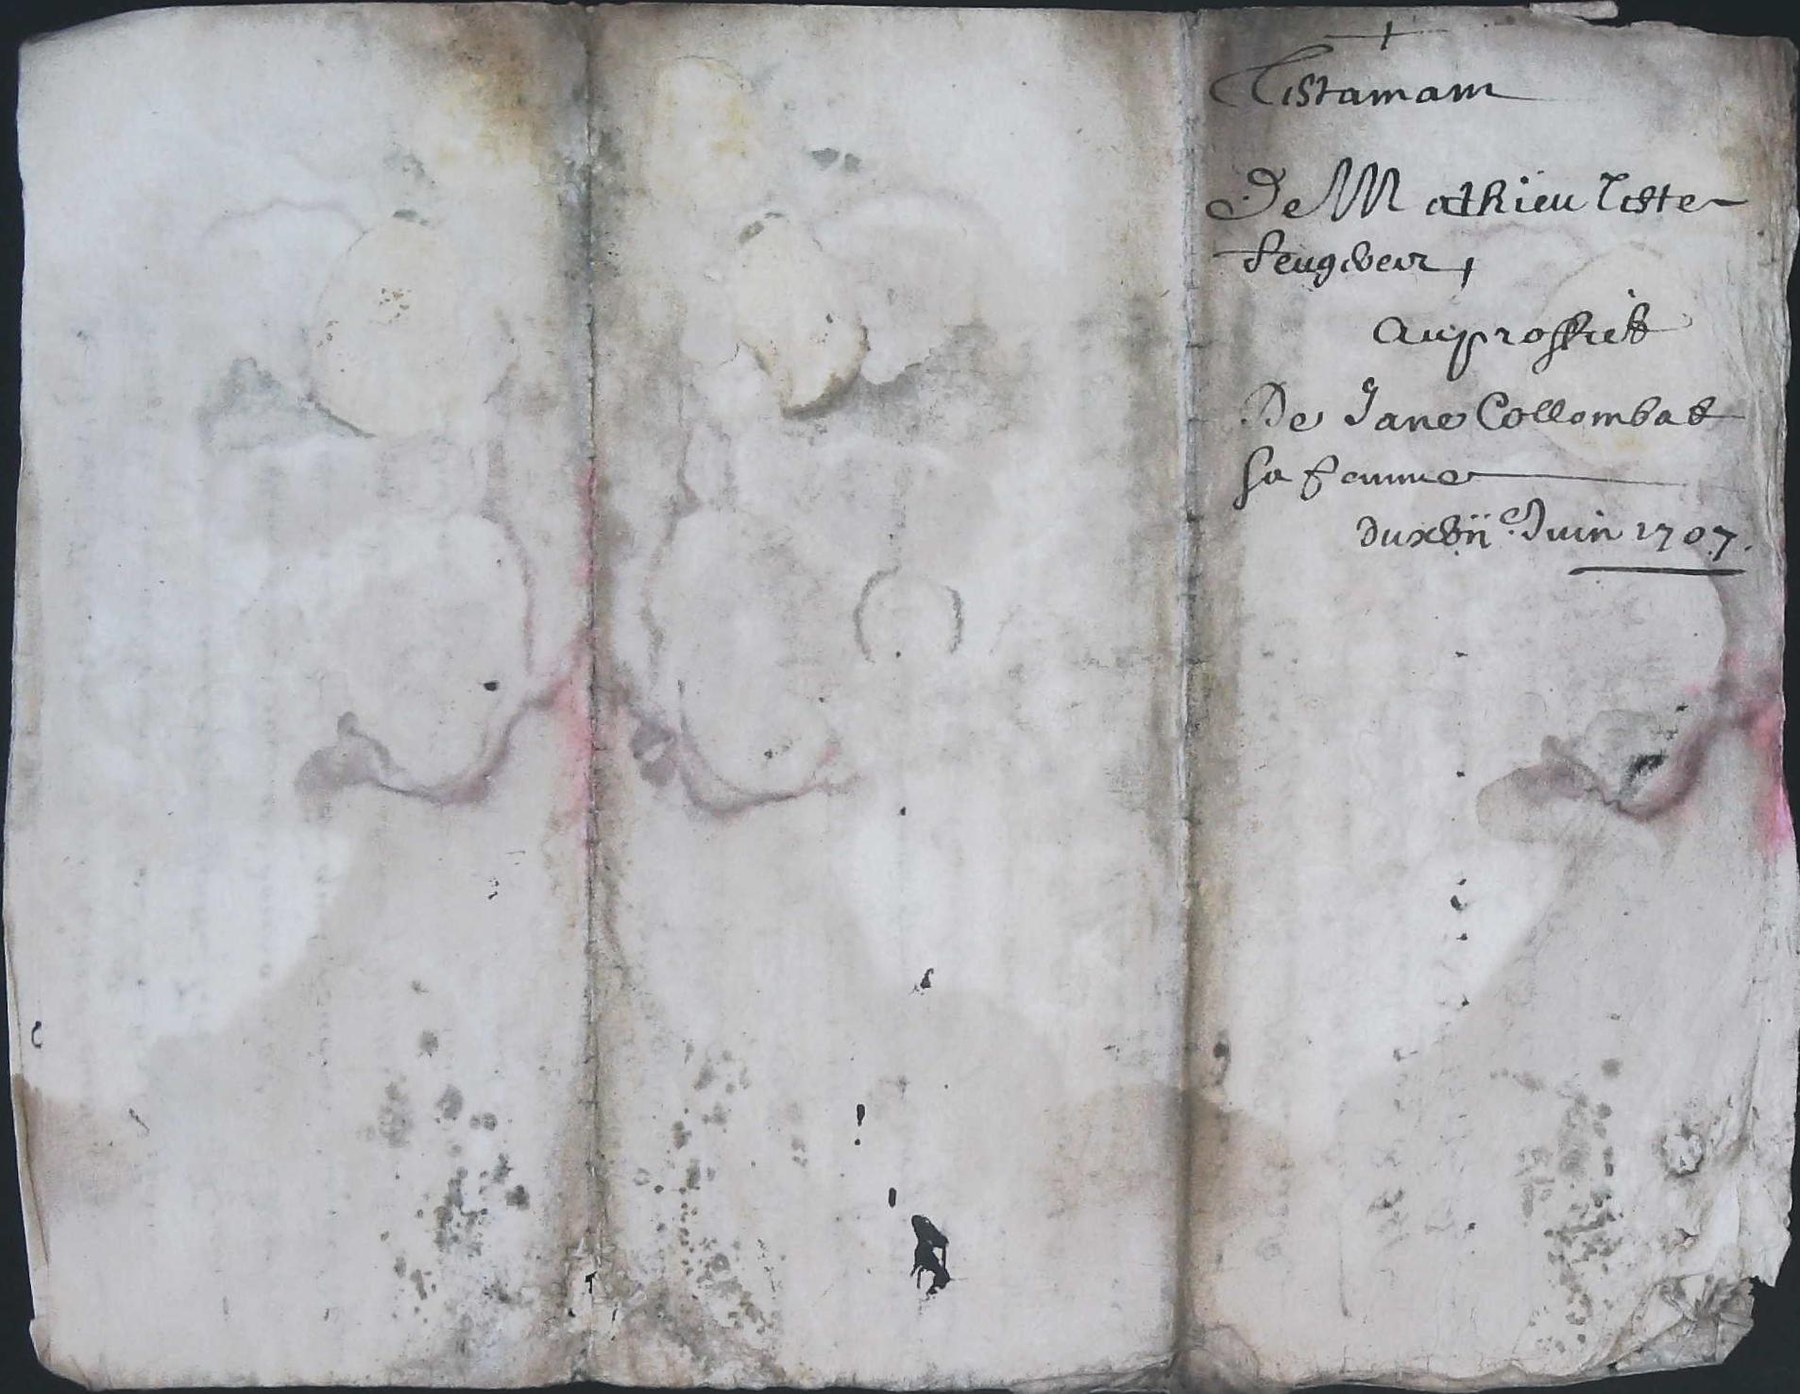 Testamam
De Mathieu Teste
feugevar
au proffict
De Jane Collombat
sa femme
du xvii e Juin 1707.